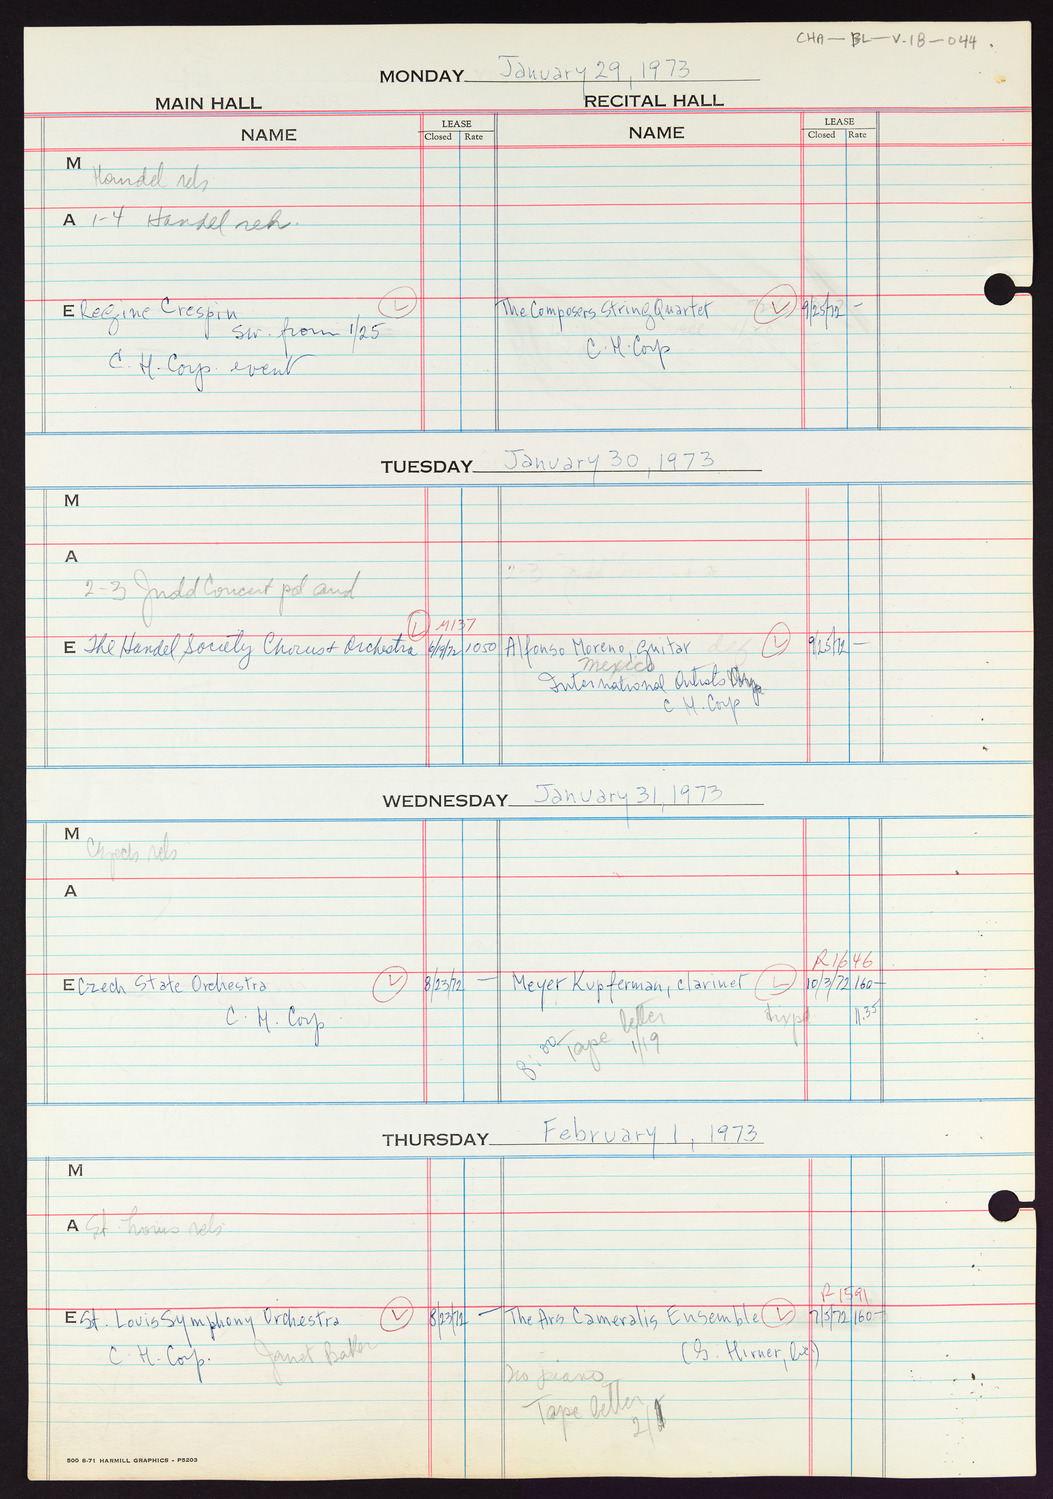 CHA-BL-V.18-044
MONDAY January 29, 1973
MAIN HALL RECITAL HALL
NAME LEASE Closed Rate NAME LEASE Closed Rate
M Handel reh
A 1-4 Handel reh.
E Regine Crespin L The Composers String Quartet L 9/25/72 -
Sw. from 1/25
C. H. Corp. event C. H. Corp
TUESDAY January 30, 1973
M
A
2-3 Judd Concert pd and
L M137
E The Handel Society Chorus + Orchestra 6/19/72 1050 Alfonso Moreno, guitar L 9/25/72 -
Mexico
International Artists
C. H. Corp
WEDNESDAY January 31, 1973
M Czech reh
A
R1646
E Czech State Orchestra L 8/23/72 - Meyer Kupferman, clarinet L 10/3/72 160-
C. H. Corp 11.35
8:00 Tape letter
1/19
THURSDAY February 1, 1973
M
A St. Louis reh
R1591
E St. Louis Symphony Orchestra L 8/23/72 - The Ars Cameralis Ensemble L 7/5/72 160-
C. H. Corp. Janet Baker (G. Hirner, )
No piano
Tape letter
2/1
500 6-71 HARMILL GRAPHICS - P5203